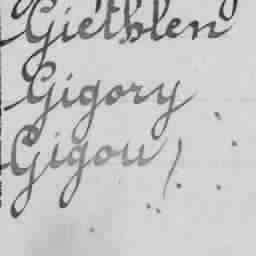 Giethlen
Gigory
Gigou